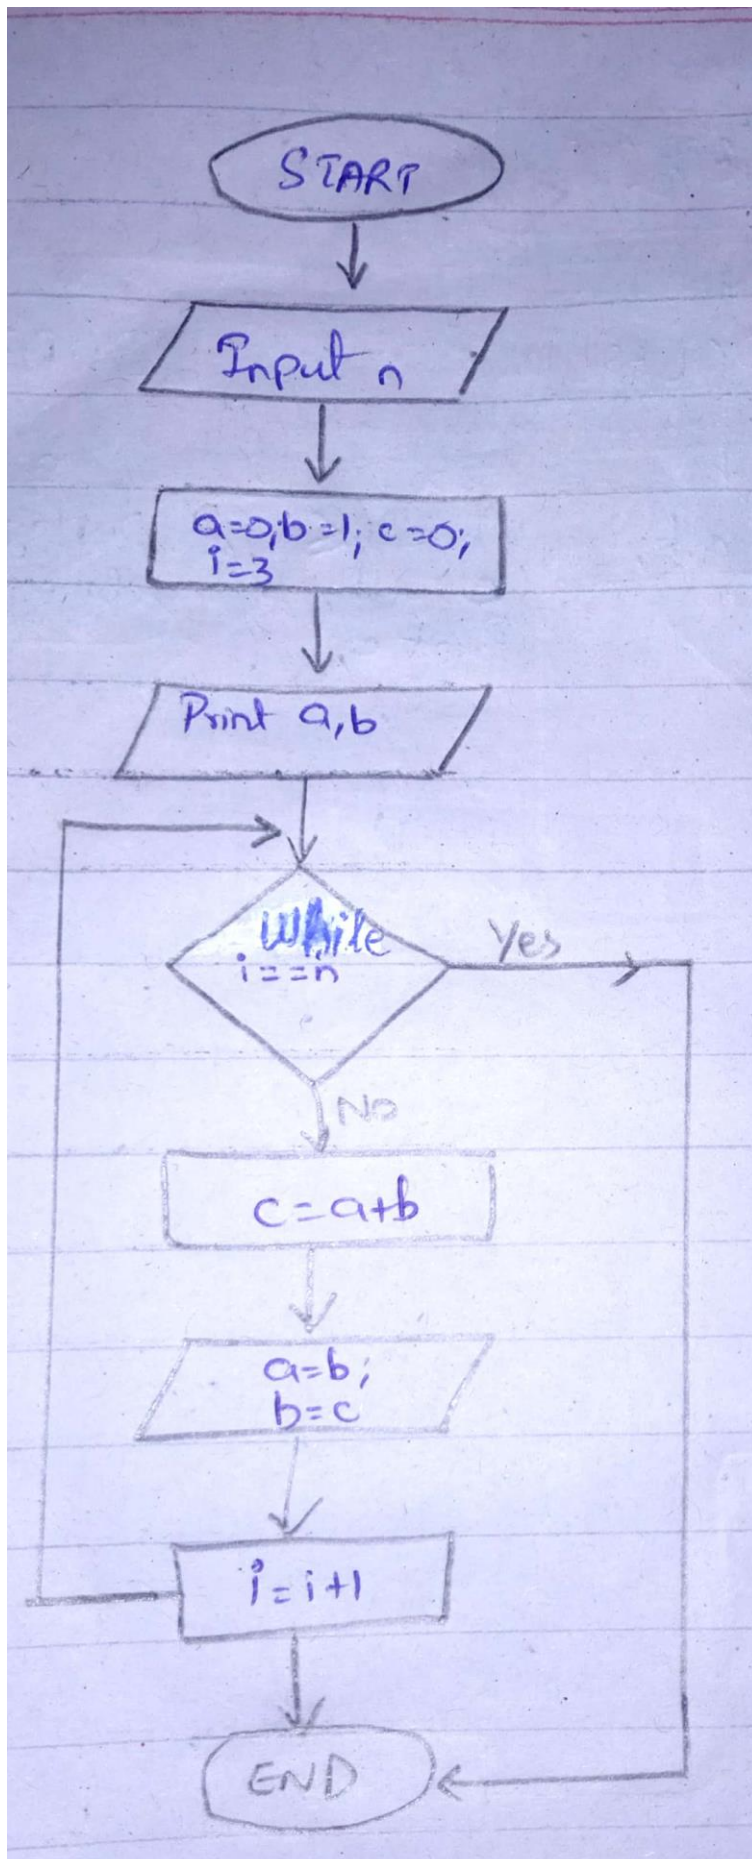 START
Input n
a=0;b=1; c=0;
i=3
Print a,b
While
i==n
Yes
NO
c=a+b
a=b;
b=c
i=i+1
END